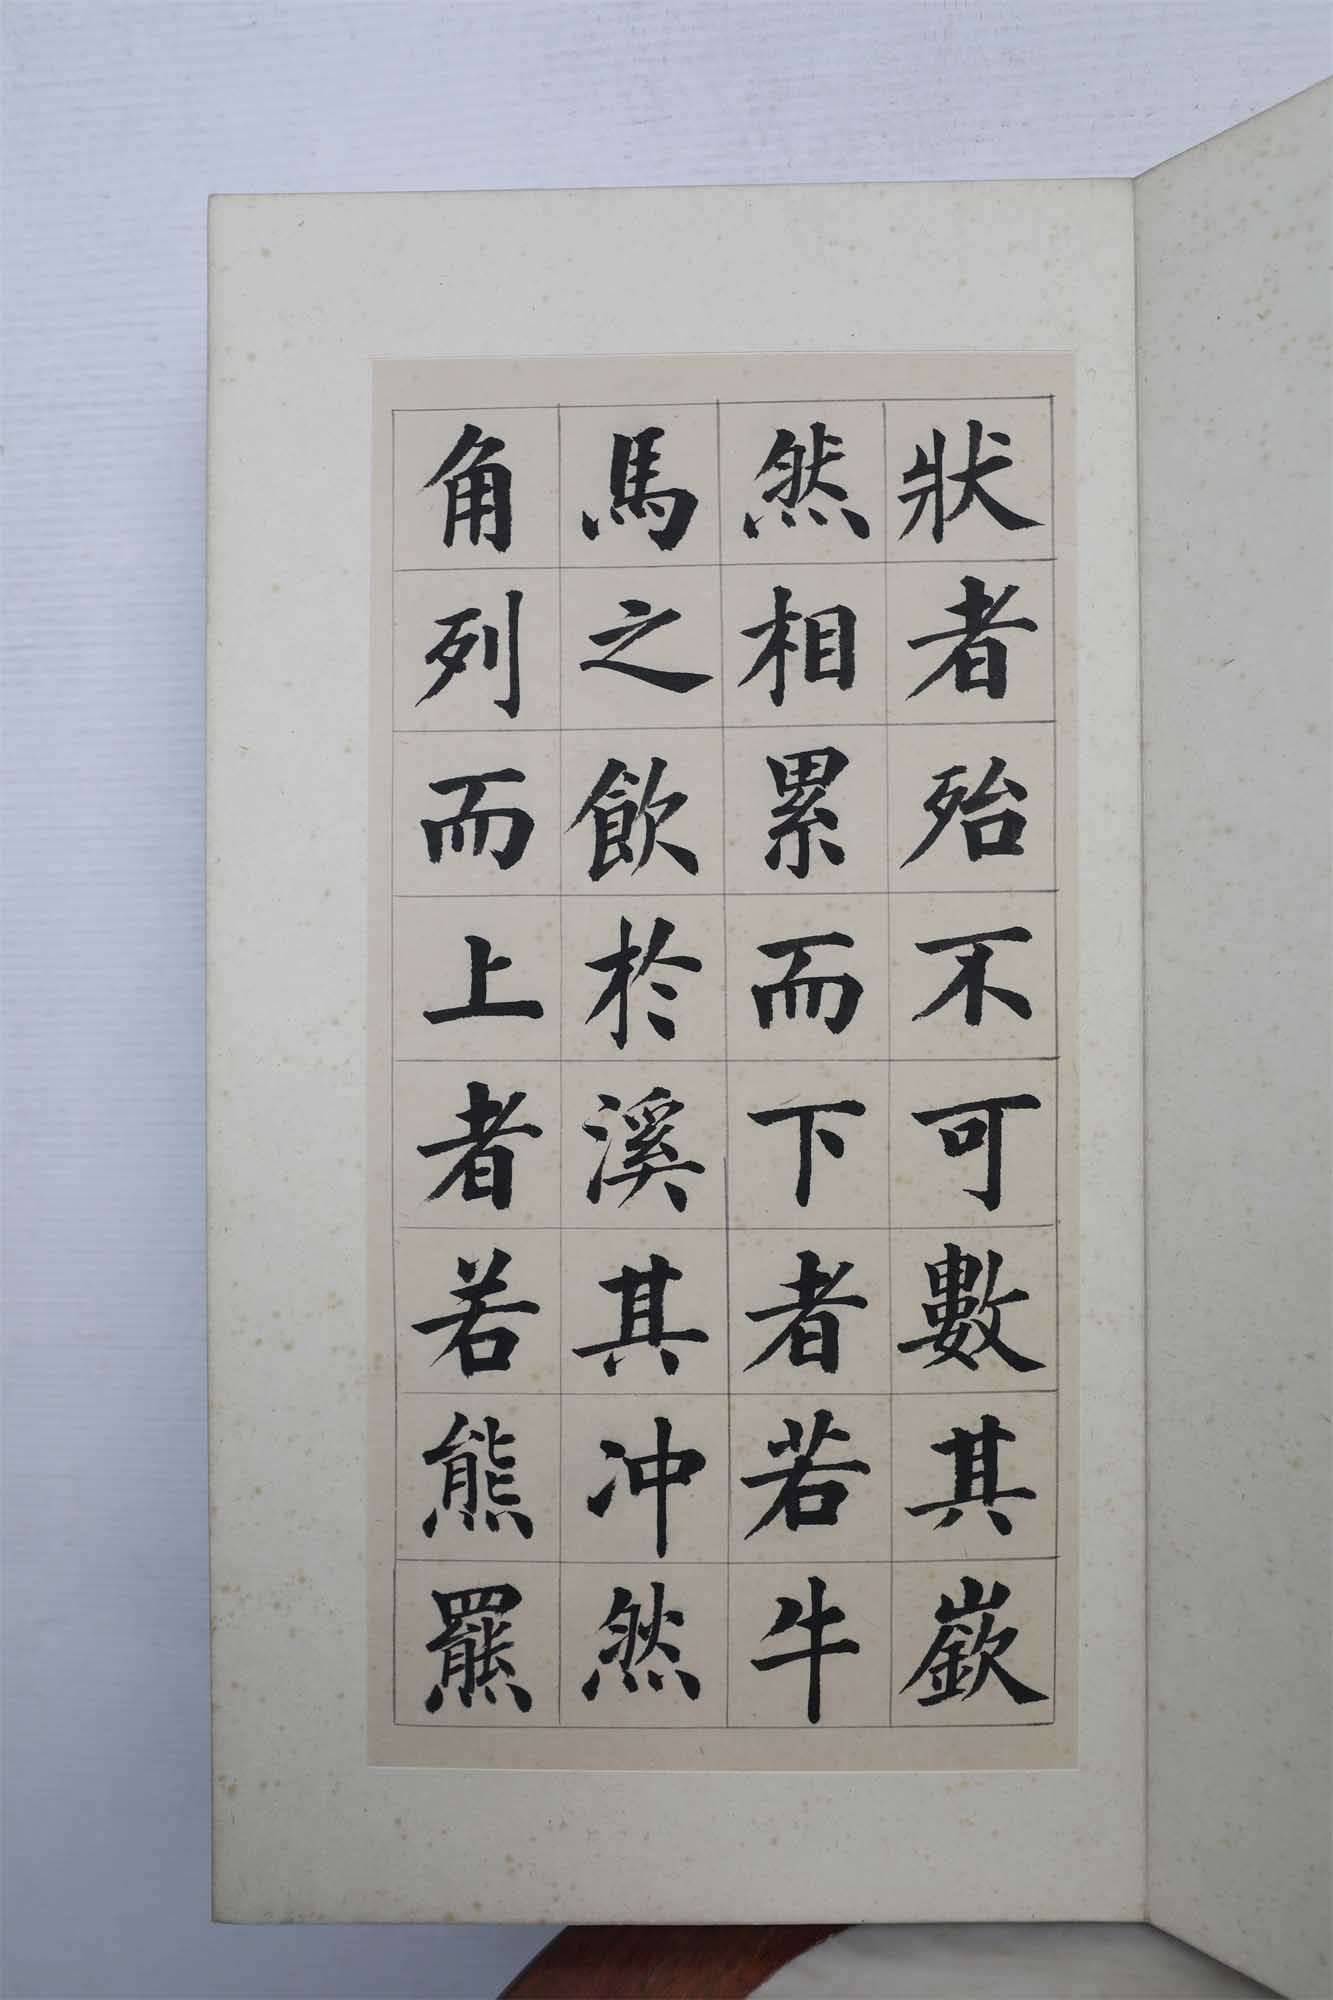 狀者殆不可數其嶔
然相累而下者若牛
馬之飲於溪其冲然
角列而上者若熊羆